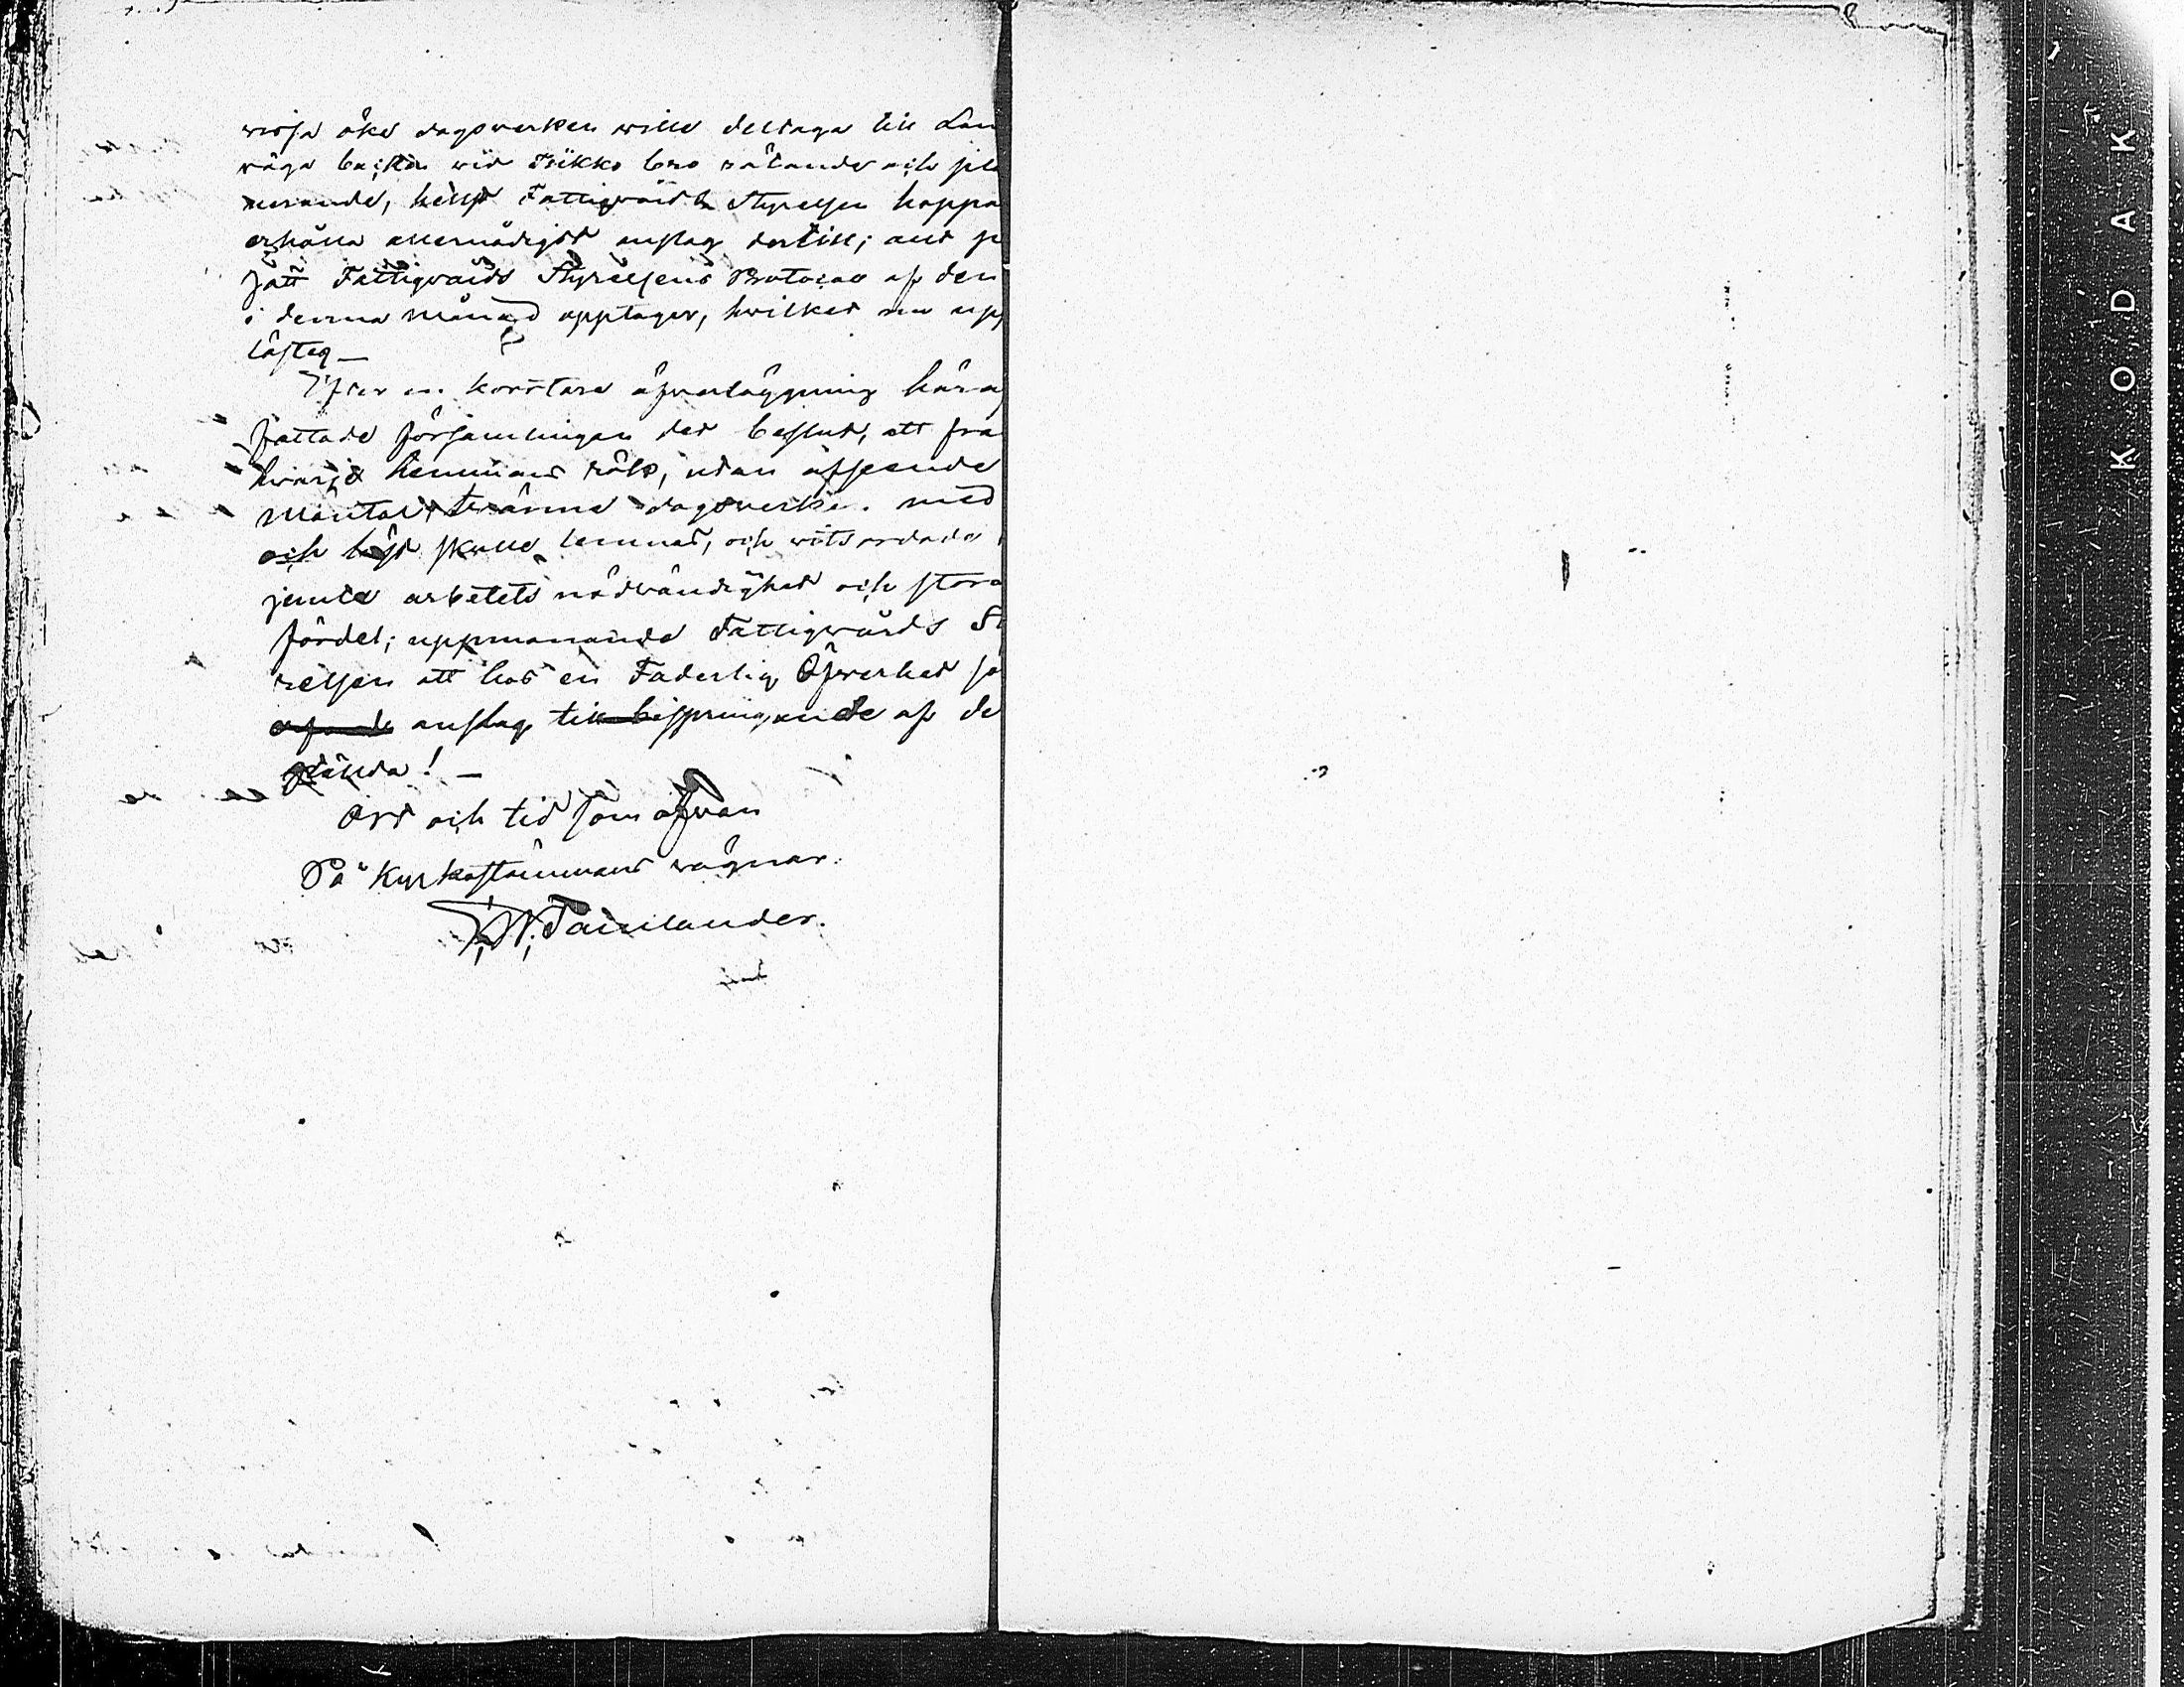 wissa öke dagsverken wille deltaga till Lan
väga backen wid Isikko bro rätande och pla
nerande, helst Fattigvårds Styrelsen hoppa
erhålla allernådigst anslag dertill; allt
sätt Fattigvårds Styrelsens Protocoll af den
i denna Månad upptager, hvilket nu upp
lästes_
Efter en kortare öfverläggning häraf
fattade församlingen det beslut, att frå
hvarje hemmans rök, utan afseende
Mantal, tvänne dagsverken med
och häst skulle lemnas, och vitsordade
jemte arbetets nödvändighet och stora
fördel; uppmanande Fattigvårds St
relsen att hos en Faderlig Öfverhet
anslag till bispringande af de
! _
Ort och tid som ofvan
På Kyrkostämmans vägnar.
W. Tainlander.
KODAK